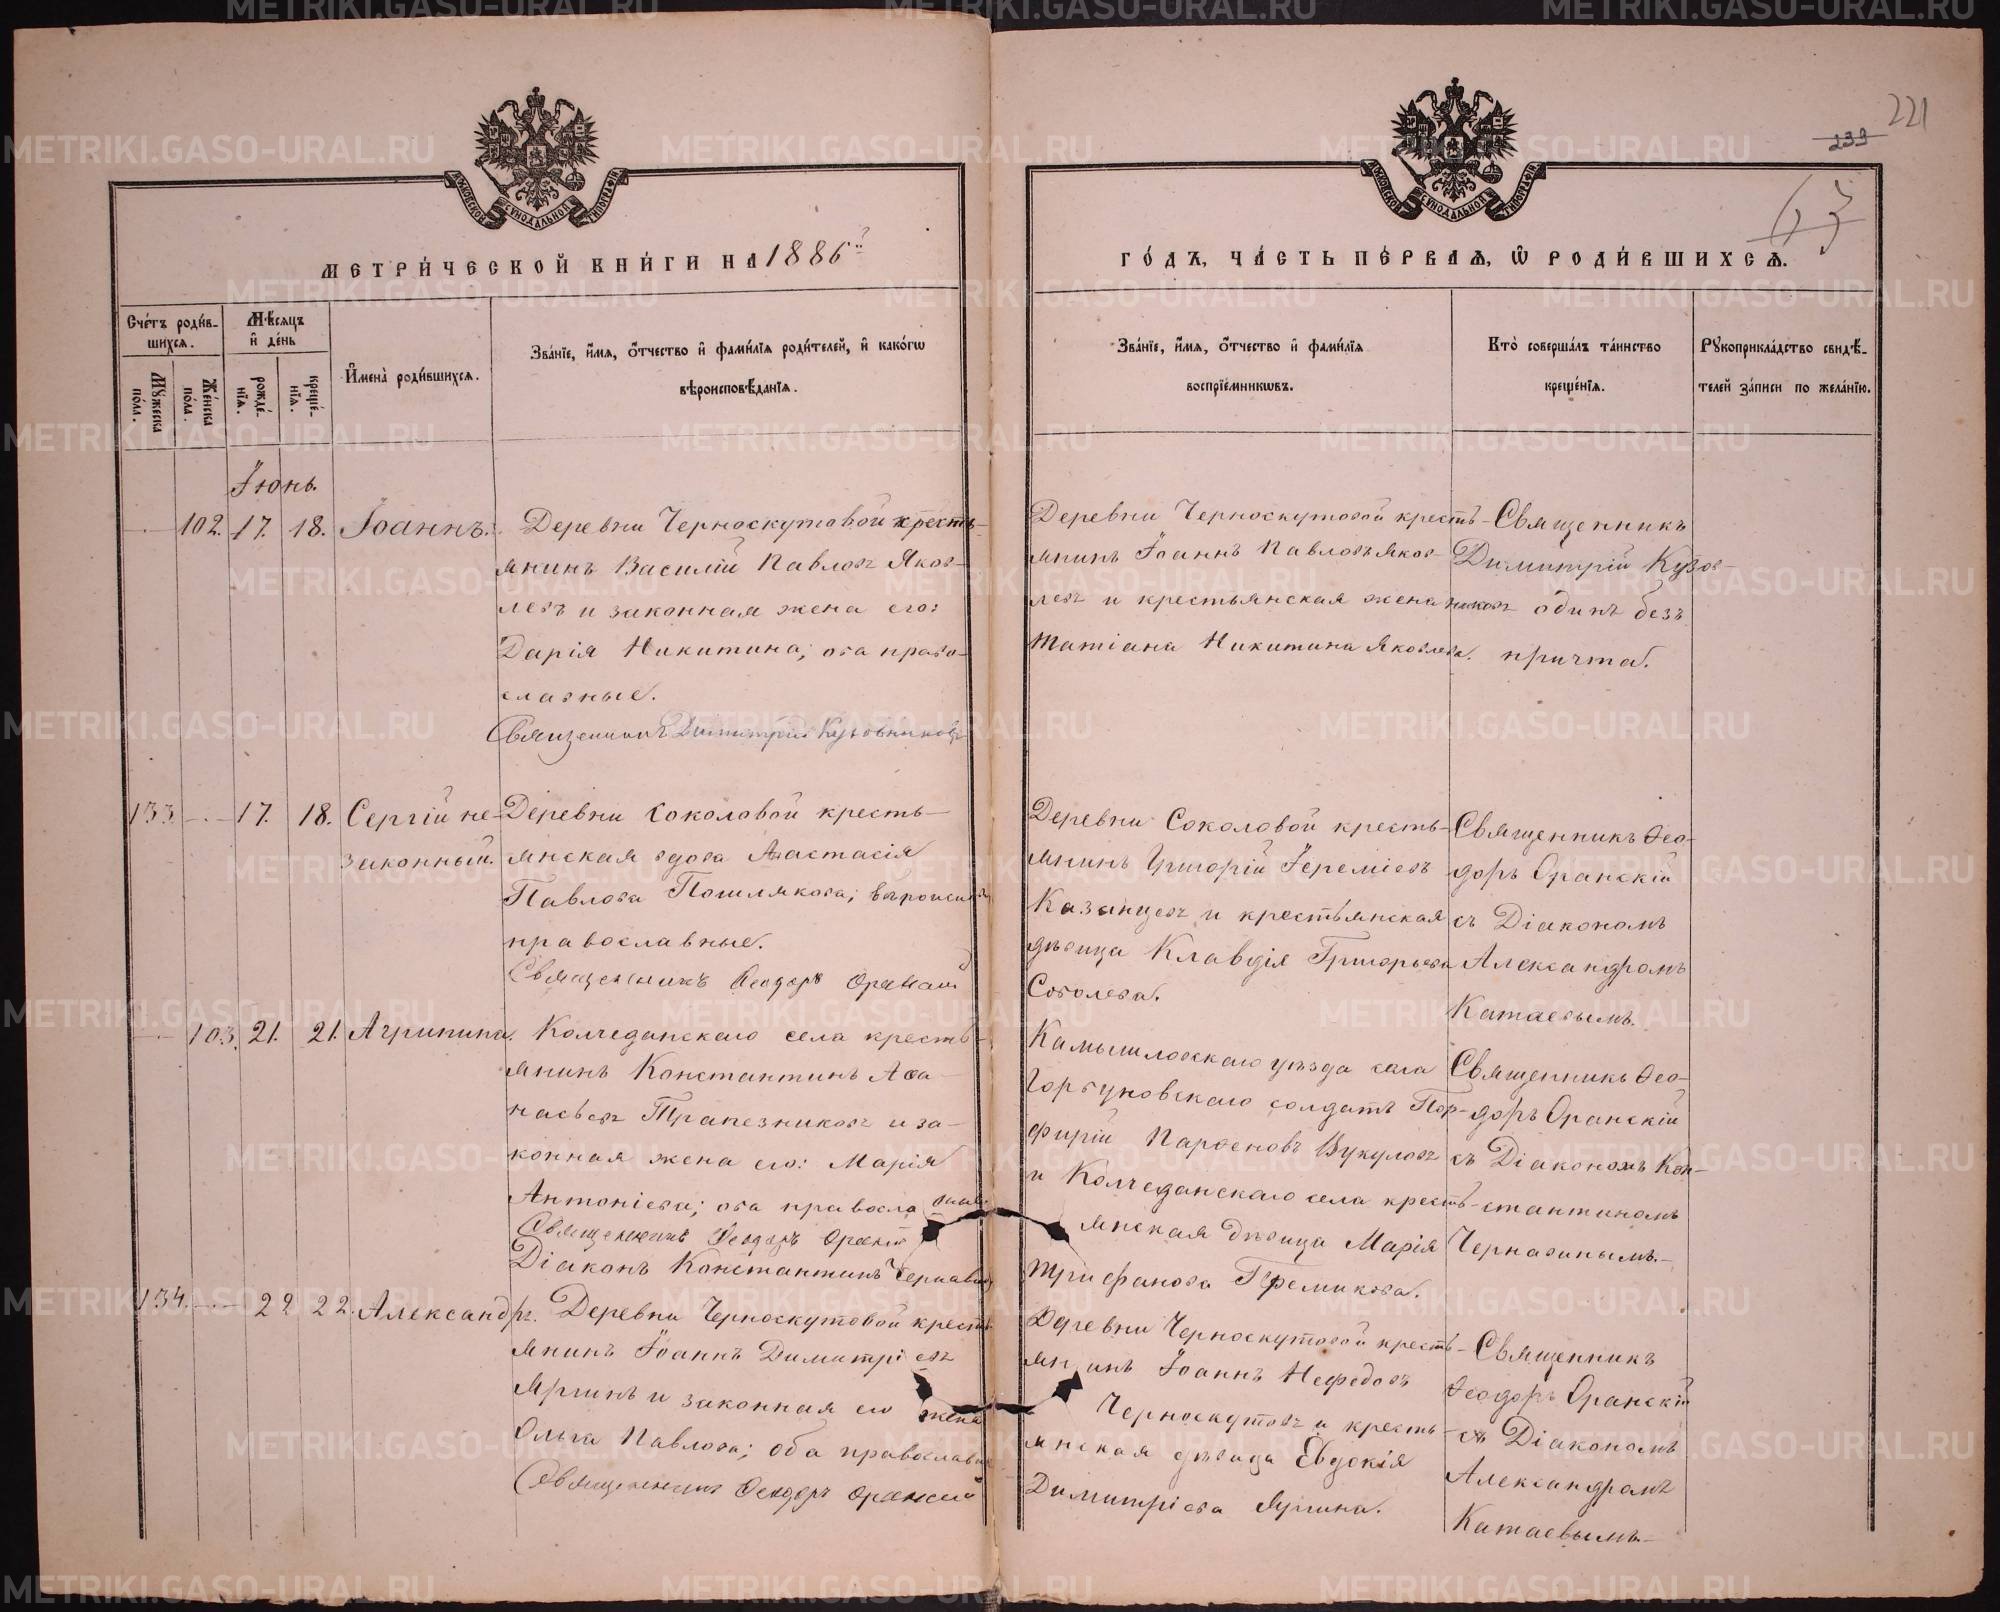 221
239
63
МОСКОВСКОЙ СѴНОДАЛЬНОЙ ТИПОГРАФІИ
МОСКОВСКОЙ СѴНОДАЛЬНОЙ ТИПОГРАФІИ
МЕТРИ́ЧЕСКОЙ КНИ́ГИ НА 1886й
ГО́ДЪ, ЧА́СТЬ ПЕ́РВАЯ, Ѡ РОДИ́ВШИХСЯ.
Сче́тъ роди́в-
шихся.
Мѣ́сяцъ
и де́нь
Му́жеска
по́ла.
Же́нска
по́ла.
рожде́-
нїя.
креще́-
нїя.
Имена̀ роди́вшихся.
Зва́нїе, и́мя, о́тчество и фами́лїя роди́телей, и како́гѡ
вѣроисповѣ́данїя.
Зва́нїе, и́мя, о́тчество и фами́лїя
воспрїе́мникѡвъ.
Кто̀ соверша́лъ та́инство
креще́нїя.
Рукоприкла́дство свидѣ́-
телей за́писи по жела́нїю.
Іюнь.
102. 17. 18. Іоаннъ.
Деревни Черноскутовой кресть-
янинъ Василій Павловъ Яков-
левъ и законная жена его:
Дарія Никитина; оба право-
славные.
Священникъ Димитрій Кузовниковъ
Деревни Черноскутовой кресть-
янинъ Іоаннъ Павловъ Яков-
левъ и крестьянская жена
Татіана Никитина Яковлева.
Священникъ
Димитрій Кузов-
никовъ одинъ безъ
причта.
133. 17. 18. Сергій не-
законный.
Деревни Соколовой кресть-
янская вдова Анастасія
Павлова Пошлякова; вѣроиспов.
православные.
Священникъ Ѳеодоръ Оранскій
Деревни Соколовой кресть-
янинъ Григорій Іереміевъ
Казанцевъ и крестьянская
дѣвица Клавдія Григорьева
Соболева.
Священникъ Ѳео-
доръ Оранскій
съ Діакономъ
Александромъ
Катаевымъ.
103. 21. 21. Агрипина.
Колчеданскаго села кресть-
янинъ Константинъ Аѳа-
насьевъ Трапезниковъ и за-
конная жена его: Марія
Антоніева; оба правосла
Священникъ Ѳеодоръ Оранскій
Діаконъ Константинъ Чернавинъ
Камышловскаго уѣзда села
Горбуновскаго солдатъ Пор-
фирій Парѳеновъ Вукуловъ
и Колчеданскаго села кресть-
янская дѣвица Марія
Трифанова Гремикова.
Священникъ Ѳео-
доръ Оранскій
съ Діакономъ Кон-
стантиномъ
Чернавинымъ.
134. 22 22. Александръ.
Деревни Черноскутовой кресть
янинъ Іоаннъ Димитріевъ
Яргинъ и законная его жена
Ольга Павлова; оба православн
Священникъ Ѳеодоръ Оранскій
Деревни Черноскутовой кресть-
янинъ Іоаннъ Нефедовъ
Черноскутовъ и кресть-
янская дѣвица Евдокія
Димитріева Яргина.
Священникъ
Ѳеодоръ Оранскій
съ Діакономъ
Александромъ
Катаевымъ.
METRIKI.GASO-URAL.RU